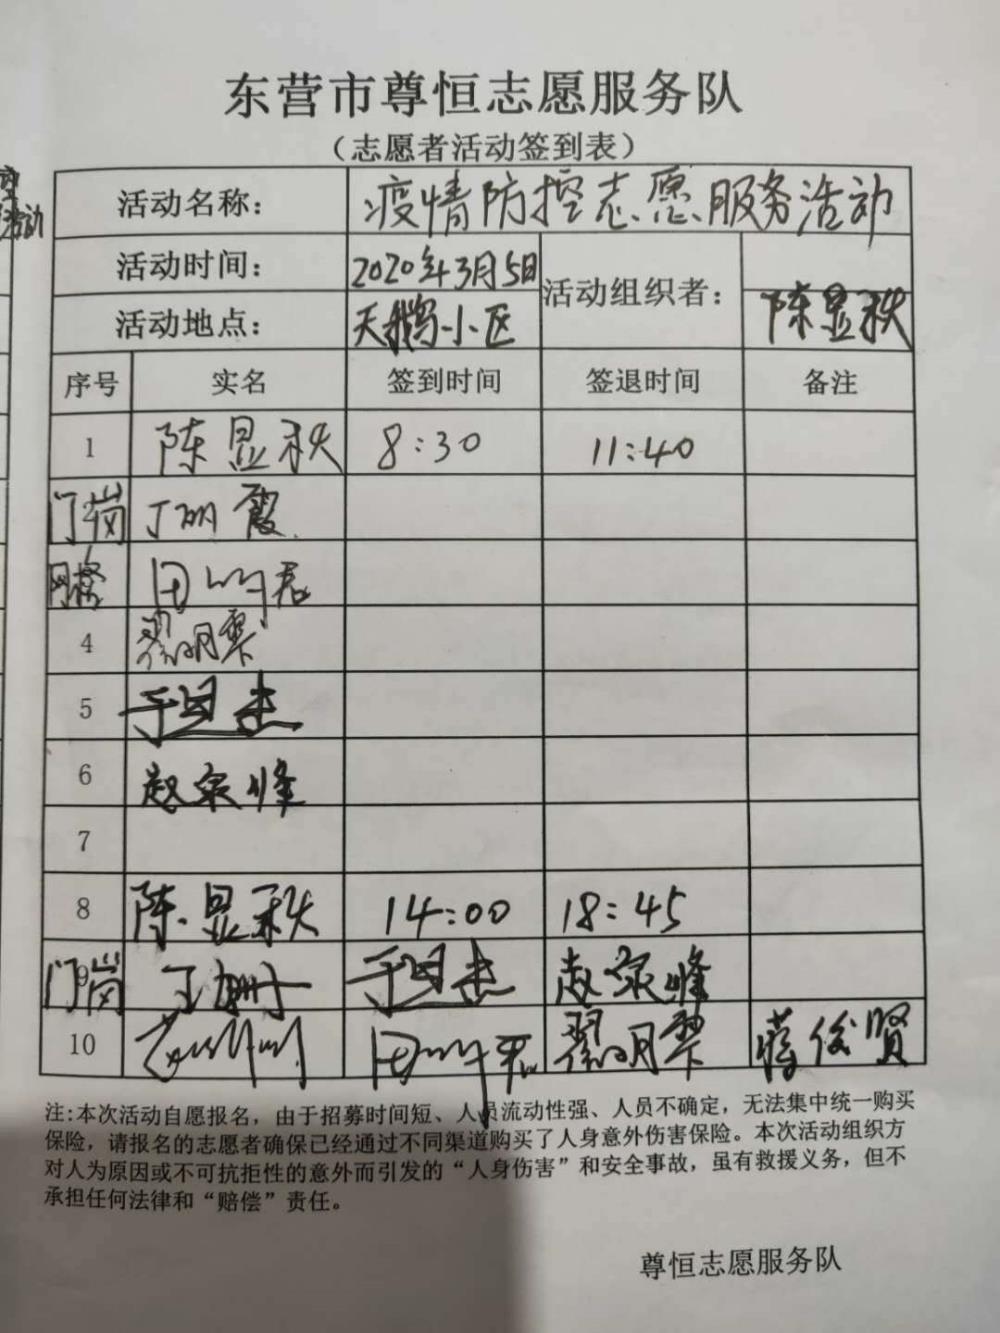 东营市尊恒志愿服务队
（志愿者活动签到表）
活动名称： 疫情防控志愿服务活动
活动时间： 2020年3月5日 活动组织者： 陈显秩
活动地点： 天鹅小区
序号 实名 签到时间 签退时间 备注
1 陈显秩 8:30 11:40
门岗 丁丽霞
网格 田
4 翟明翠
5 于国杰
6 赵泉峰
7
8 陈显秩 14:00 18:45
门岗 于国杰 赵泉峰
10 田 翟明翠 蒋俊贤
注:本次活动自愿报名，由于招募时间短、人员流动性强、人员不确定，无法集中统一购买
保险，请报名的志愿者确保已经通过不同渠道购买了人身意外伤害保险。本次活动组织方
对人为原因或不可抗拒性的意外而引发的“人身伤害”和安全事故，虽有救援义务，但不
承担任何法律和“赔偿”责任。
尊恒志愿服务队